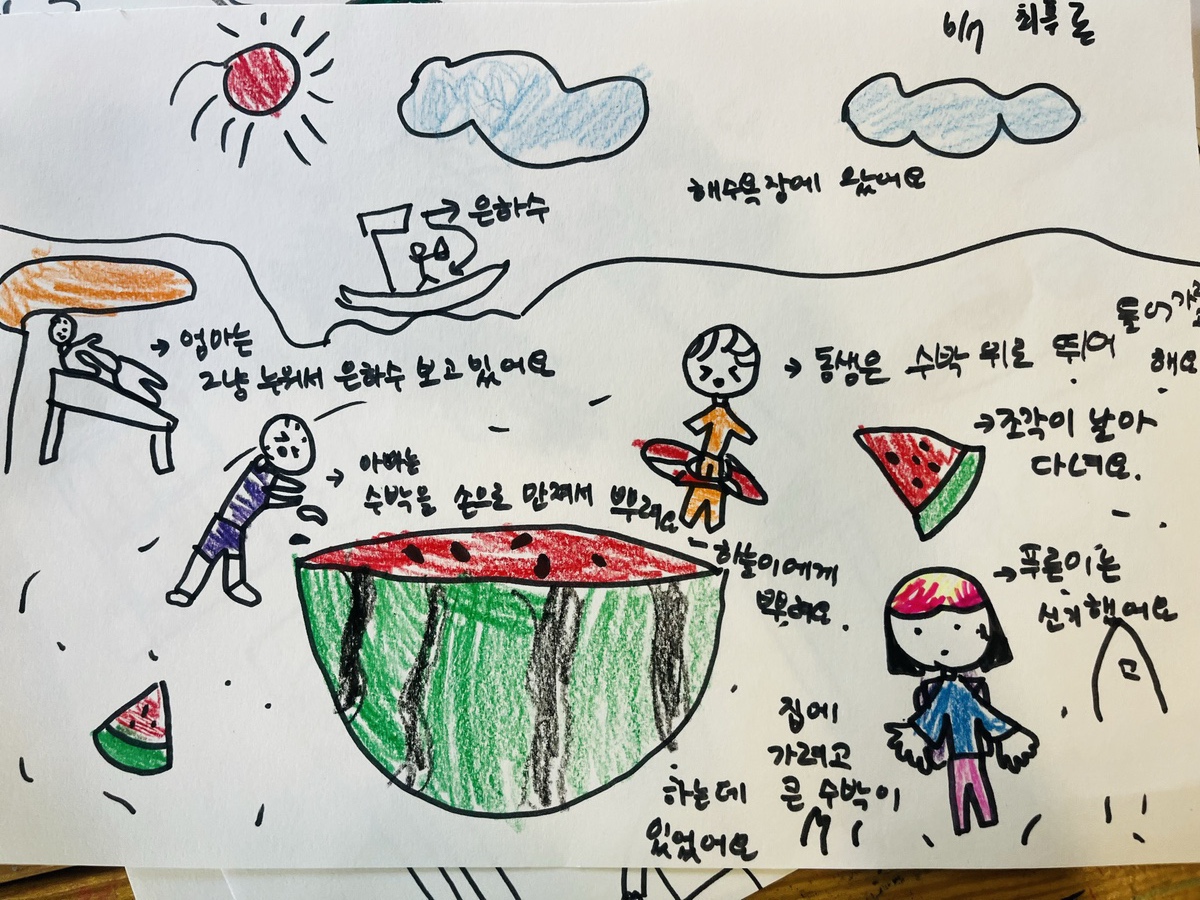 6/7 최푸른
해수욕장에 왔네요
→ 은하수
→ 엄마는
그냥 누워서 은하수 보고 있어요
→ 동생은 수박 위로 뛰어
들어가려
해요
→ 조각이 날아
다녀요.
→ 아빠는
수박을 손으로 만져서 뿌려요
하늘이에게
뿌려요.
→ 푸른이는
신기했어요
집에
가려고
하는데 큰 수박이
있었어요